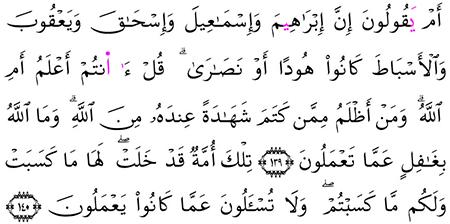 أَمْ يَقُولُونَ إِنَّ إِبْرَٰهِيمَ وَإِسْمَـٰعِيلَ وَإِسْحَـٰقَ وَيَعْقُوبَ
وَٱلْأَسْبَاطَ كَانُوا۟ هُودًا أَوْ نَصَـٰرَىٰ ۗ قُلْ ءَاٰنتُمْ أَعْلَمُ أَمِ
ٱللَّهُ ۗ وَمَنْ أَظْلَمُ مِمَّن كَتَمَ شَهَـٰدَةً عِندَهُۥ مِنَ ٱللَّهِ ۗ وَمَا ٱللَّهُ
بِغَـٰفِلٍ عَمَّا تَعْمَلُونَ ﴿١٣٩﴾ تِلْكَ أُمَّةٌ قَدْ خَلَتْ ۖ لَهَا مَا كَسَبَتْ
وَلَكُم مَّا كَسَبْتُمْ ۖ وَلَا تُسْـَٔلُونَ عَمَّا كَانُوا۟ يَعْمَلُونَ ﴿١٤٠﴾